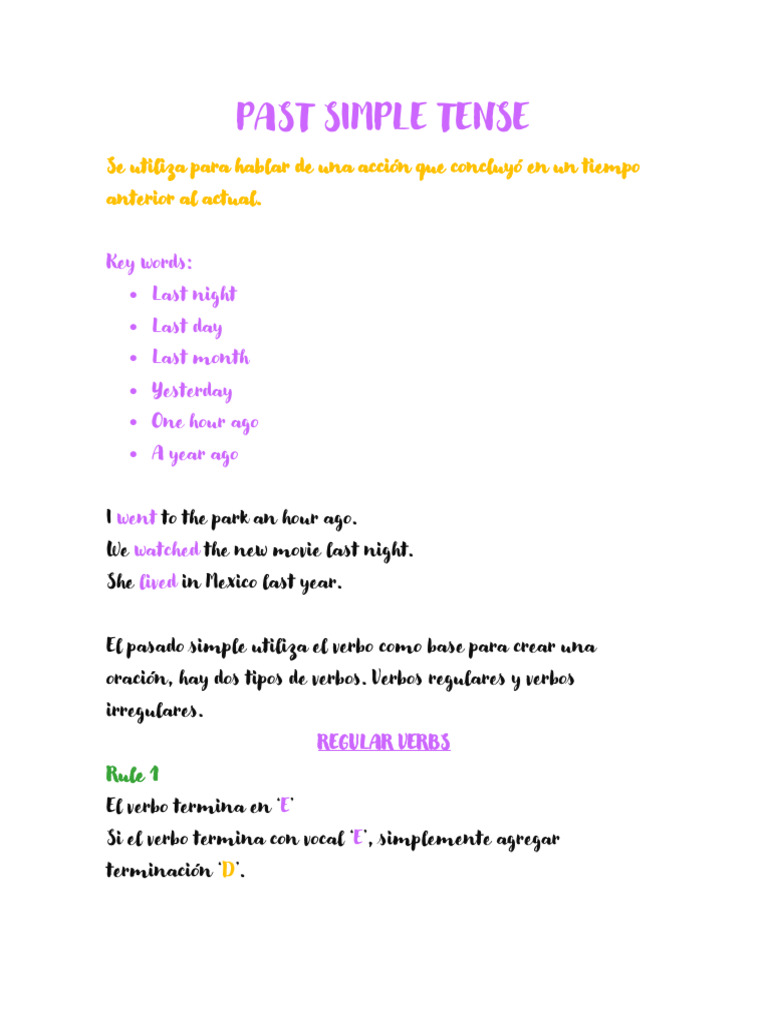 PAST SIMPLE TENSE
Se utiliza para hablar de una acción que concluyó en un tiempo
anterior al actual.
Key words:
• Last night
• Last day
• Last month
• Yesterday
• One hour ago
• A year ago
I went to the park an hour ago.
We watched the new movie last night.
She lived in Mexico last year.
El pasado simple utiliza el verbo como base para crear una
oración, hay dos tipos de verbos. Verbos regulares y verbos
irregulares.
REGULAR VERBS
Rule 1
El verbo termina en 'E'
Si el verbo termina con vocal 'E', simplemente agregar
terminación 'D'.